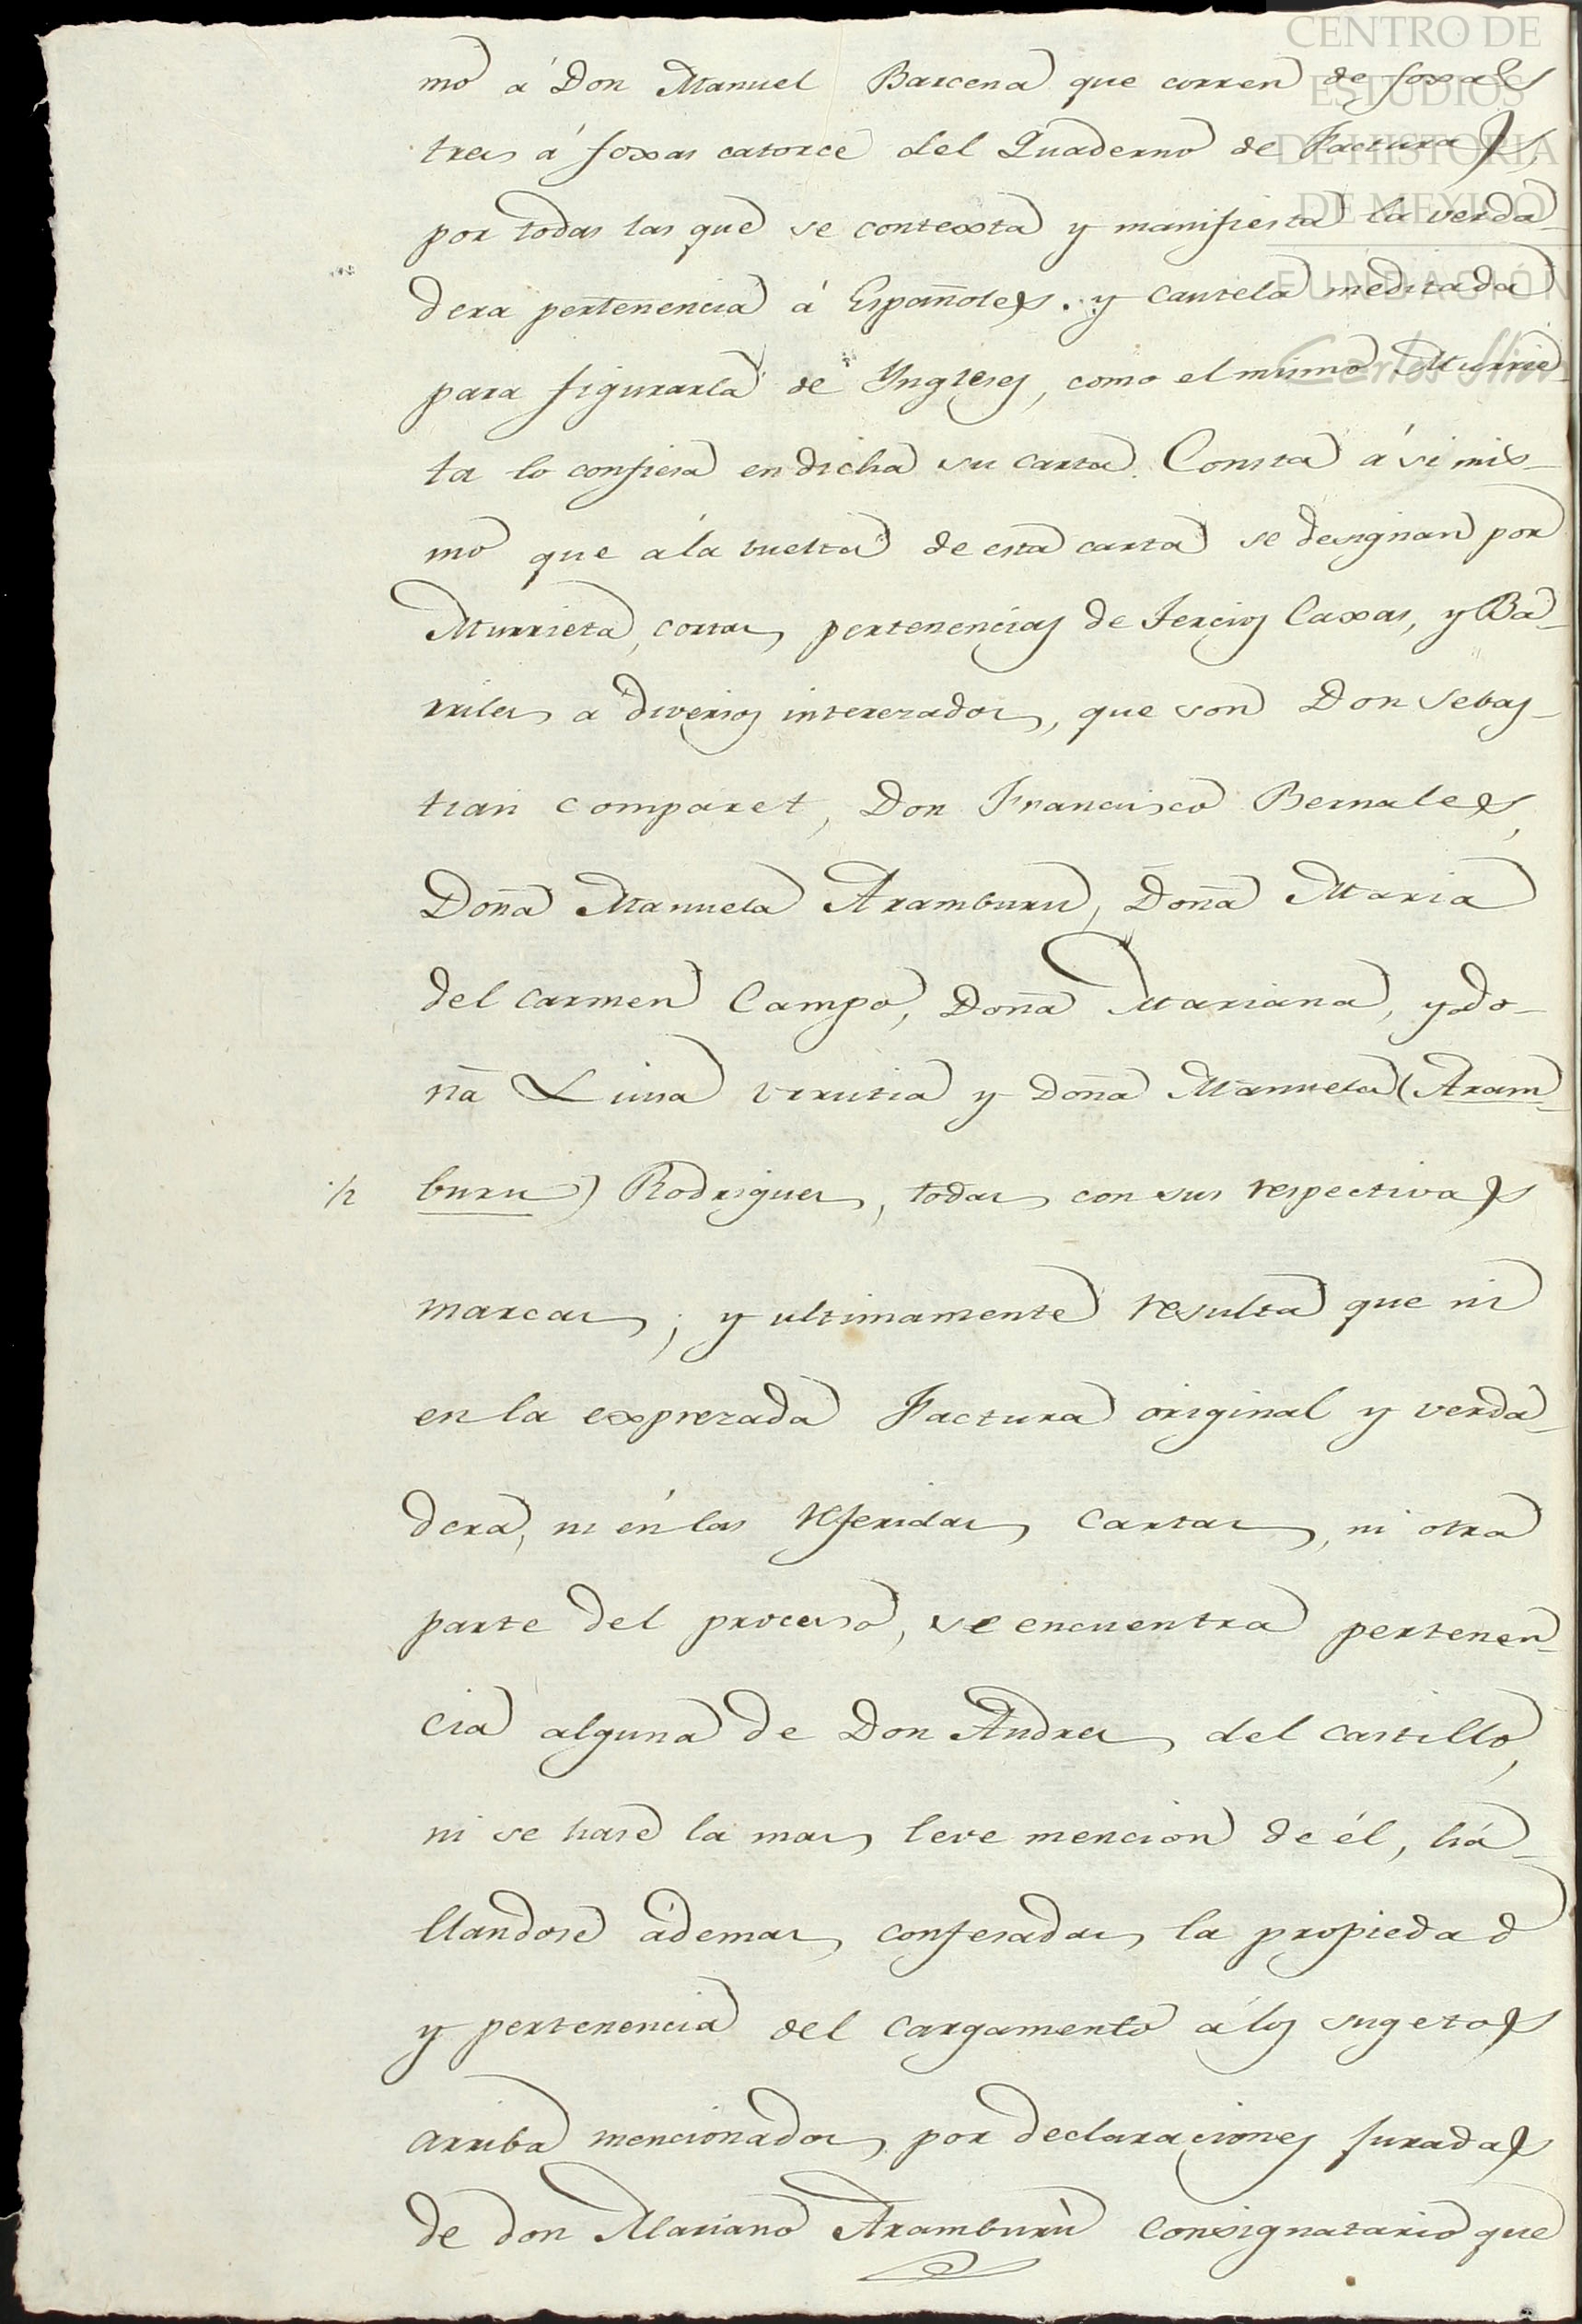 CENTRO DE
ESTUDIOS
DE HISTORIA
DE MEXICO
FUNDACIÓN
Carlos Slim
mo á Don Manuel Barcena que corren de foxas
tres á foxas catorce del Quaderno de Facturas,
por todas las que se contexta y manifiesta la verda-
dera pertenencia á Españoles. y cautela meditada
para figurarla de Yngleses, como el mismo Murrie-
ta lo confiesa en dicha su carta. Consta á si mis-
mo que ála vuelta de esta carta se designan por
Murrieta, cortas pertenencias de Tercios Caxas, y Ba-
rriles a diversos interezados, que son Don Sebas-
tian Comparet, Don Francisco Bernales,
Doña Manuela Aramburu, Doña Maria
del Carmen Campo, Doña Mariana, y do-
ña Luisa Urrutia y Doña Manuela (Aram-
buru) Rodrigues, todas con sus respectivas
marcas; y ultimamente resulta que ni
en la exprezada Factura original y verda-
dera, ni en las referidas Cartas, ni otra
parte del proceso, se encuentra pertenen-
cia alguna de Don Andres del Castillo,
ni se hase la mas leve mencion de él, há-
llandose ádemas confesadas la propiedad
y pertenencia del Cargamento á los sugetos
arriba mencionados por declaraciones juradas
de don Mariano Aramburù Consignatario que